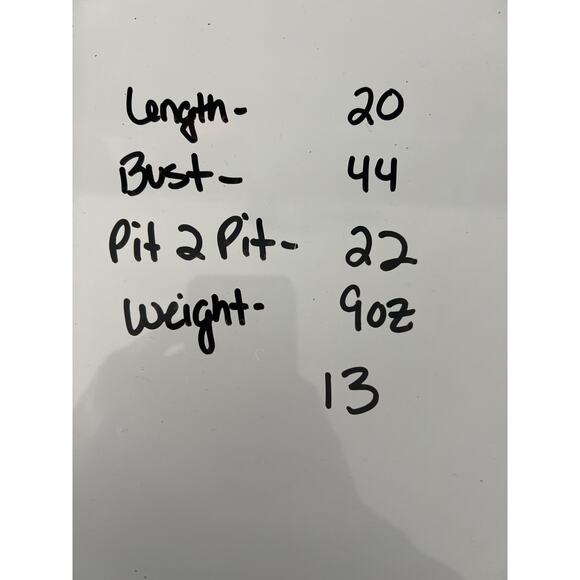 Length- 20
Bust- 44
Pit 2 Pit- 22
Weight- 9oz
13